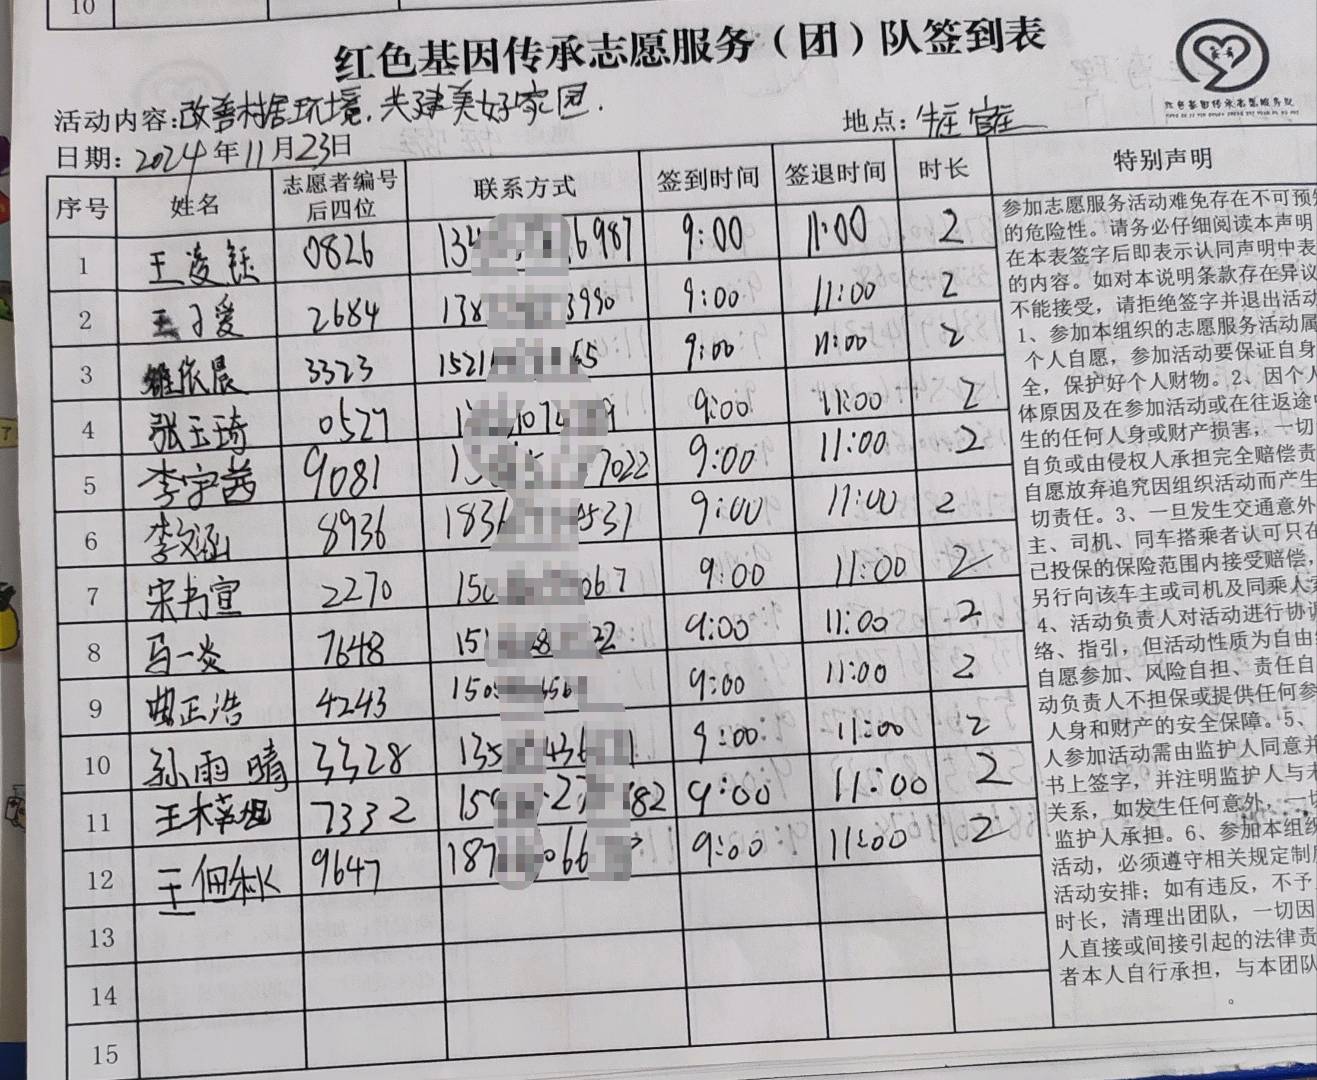 10
红色基因传承志愿服务（团）队签到表
活动内容:改善村居环境,共建美好家园.
地点:
日期:2024年11月23日
序号 姓名 志愿者编号后四位 联系方式 签到时间 签退时间 时长 特别声明
1 王凌钰 0826 134 6987 9:00 11:00 2
2 王子爱 2684 138 3990 9:00 11:00 2
3 依晨 3323 1521 65 9:00 11:00 2
4 张玉琦 0527 1 074 9 9:00 11:00 2
5 李宇茜 9081 1 7022 9:00 11:00 2
6 李文涵 8936 1836 4531 9:00 11:00 2
7 宋书宣 2270 150 067 9:00 11:00 2
8 马一炎 7648 151 8 22 9:00 11:00 2
9 曲正浩 4243 150 56 9:00 11:00 2
10 孙雨晴 3328 135 436 1 9:00 11:00 2
11 王梓 7332 150 27 182 9:00 11:00 2
12 王佃 9647 187 066 9:00 11:00 2
13
14
15
参加志愿服务活动难免存在不可预知
的危险性。请务必仔细阅读本声明
在本表签字后即表示认同声明中表
的内容。如对本说明条款存在异议
不能接受，请拒绝签字并退出活动
1、参加本组织的志愿服务活动属
个人自愿，参加活动要保证自身
全，保护好个人财物。2、因个人
体原因及在参加活动或在往返途中
生的任何人身或财产损害，一切
自负或由侵权人承担完全赔偿责
自愿放弃追究因组织活动而产生
切责任。3、一旦发生交通意外
主、司机、同车搭乘者认可只在
已投保的保险范围内接受赔偿，
另行向该车主或司机及同乘人索
4、活动负责人对活动进行协调
络、指引，但活动性质为自由组
自愿参加、风险自担、责任自
动负责人不担保或提供任何参
人身和财产的安全保障。5、
人参加活动需由监护人同意并
书上签字，并注明监护人与未
关系，如发生任何意外，一切
监护人承担。6、参加本组织
活动，必须遵守相关规定制度
活动安排；如有违反，不予
时长，清理出团队，一切因
人直接或间接引起的法律责
者本人自行承担，与本团队
。